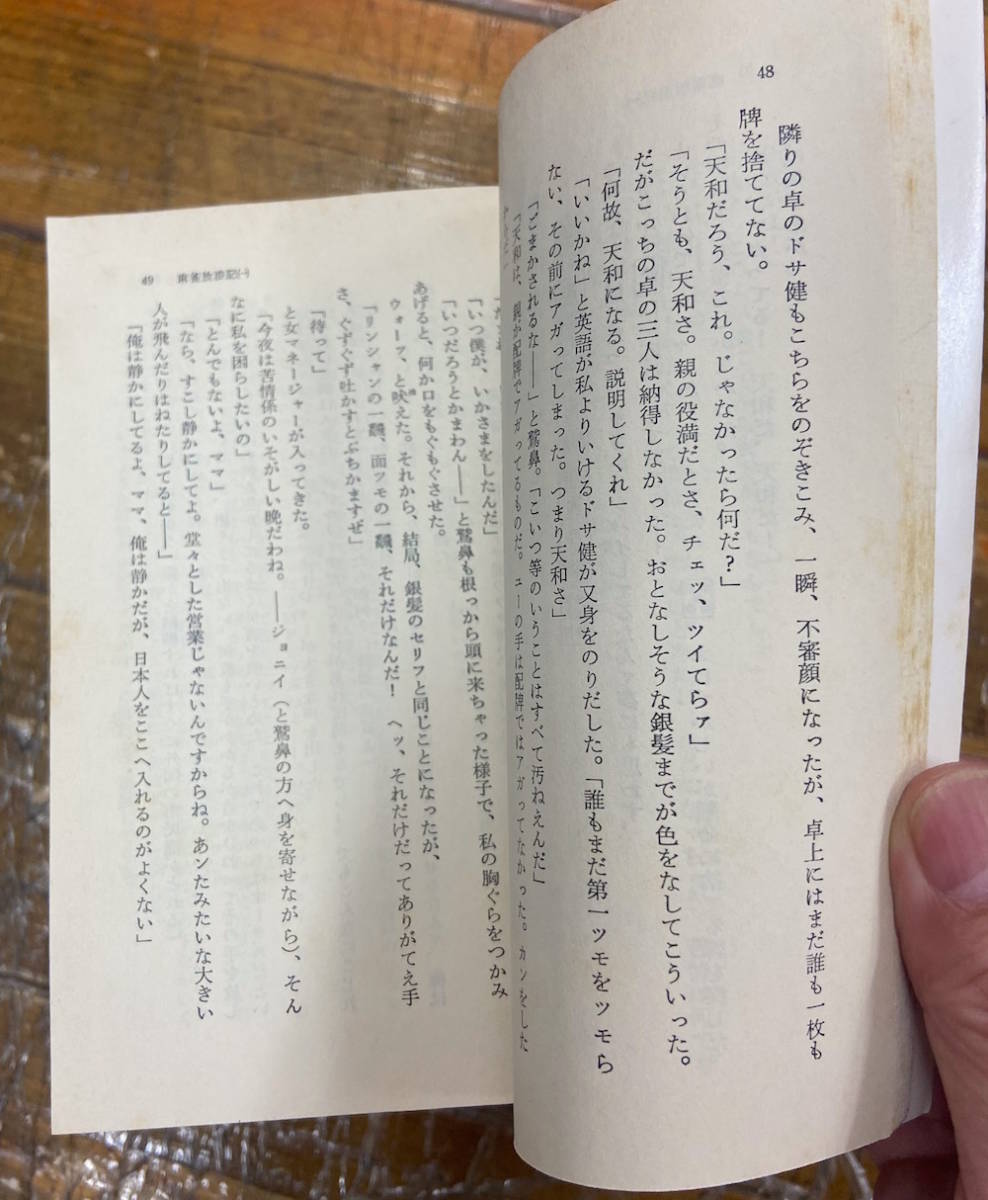 48
隣りの卓のドサ健もこちらをのぞきこみ、一瞬、不審顔になったが、卓上にはまだ誰も一枚も
牌を捨ててない。
「天和だろう、これ。じゃなかったら何だ？」
「そうとも、天和さ。親の役満だとさ、チェッ、ツイてらァ」
だがこっちの卓の三人は納得しなかった。おとなしそうな銀髪までが色をなしてこういった。
「何故、天和になる。説明してくれ」
「いいかね」と英語が私よりいけるドサ健が又身をのりだした。「誰もまだ第一ツモをツモら
ない、その前にアガってしまった。つまり天和さ」
「ごまかされるな——」と鷲鼻。「こいつ等のいうことはすべて汚ねえんだ」
「天和は、親が配牌でアガってるものだ。ユーの手は配牌ではアガってなかった。カンをした
49 麻雀放浪記(一)
「いつ僕が、いかさまをしたんだ」
「いつだろうとかまわん——」と鷲鼻も根っから頭に来ちゃった様子で、私の胸ぐらをつかみ
あげると、何か口をもぐもぐさせた。
ウォーッ、と吠えた。それから、結局、銀髪のセリフと同じことになったが、
「リンシャンの一翻、面ツモの一翻、それだけなんだ！　ヘッ、それだけだってありがてえ手
さ、ぐずぐず吐かすとぶちかますぜ」
「待って」
と女マネージャーが入ってきた。
「今夜は苦情係のいそがしい晩だわね。——ジョニイ（と鷲鼻の方へ身を寄せながら）、そん
なに私を困らしたいの」
「とんでもないよ、ママ」
「なら、すこし静かにしてよ。堂々とした営業じゃないんですからね。あンたみたいな大きい
人が飛んだりはねたりしてると——」
「俺は静かにしてるよ、ママ、俺は静かだが、日本人をここへ入れるのがよくない」